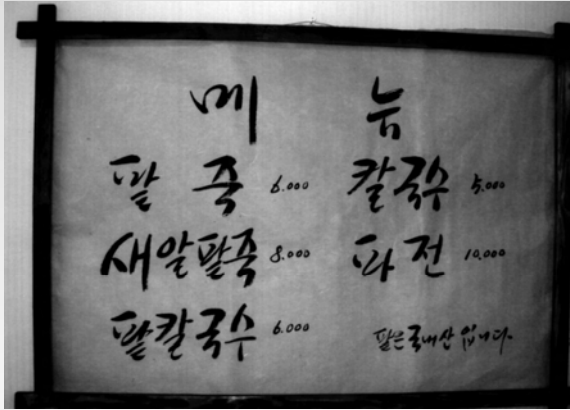 메 뉴
팥 죽 6.000 칼국수 5.000
새알팥죽 8.000 파전 10.000
팥칼국수 6.000
팥은 국내산 입니다.